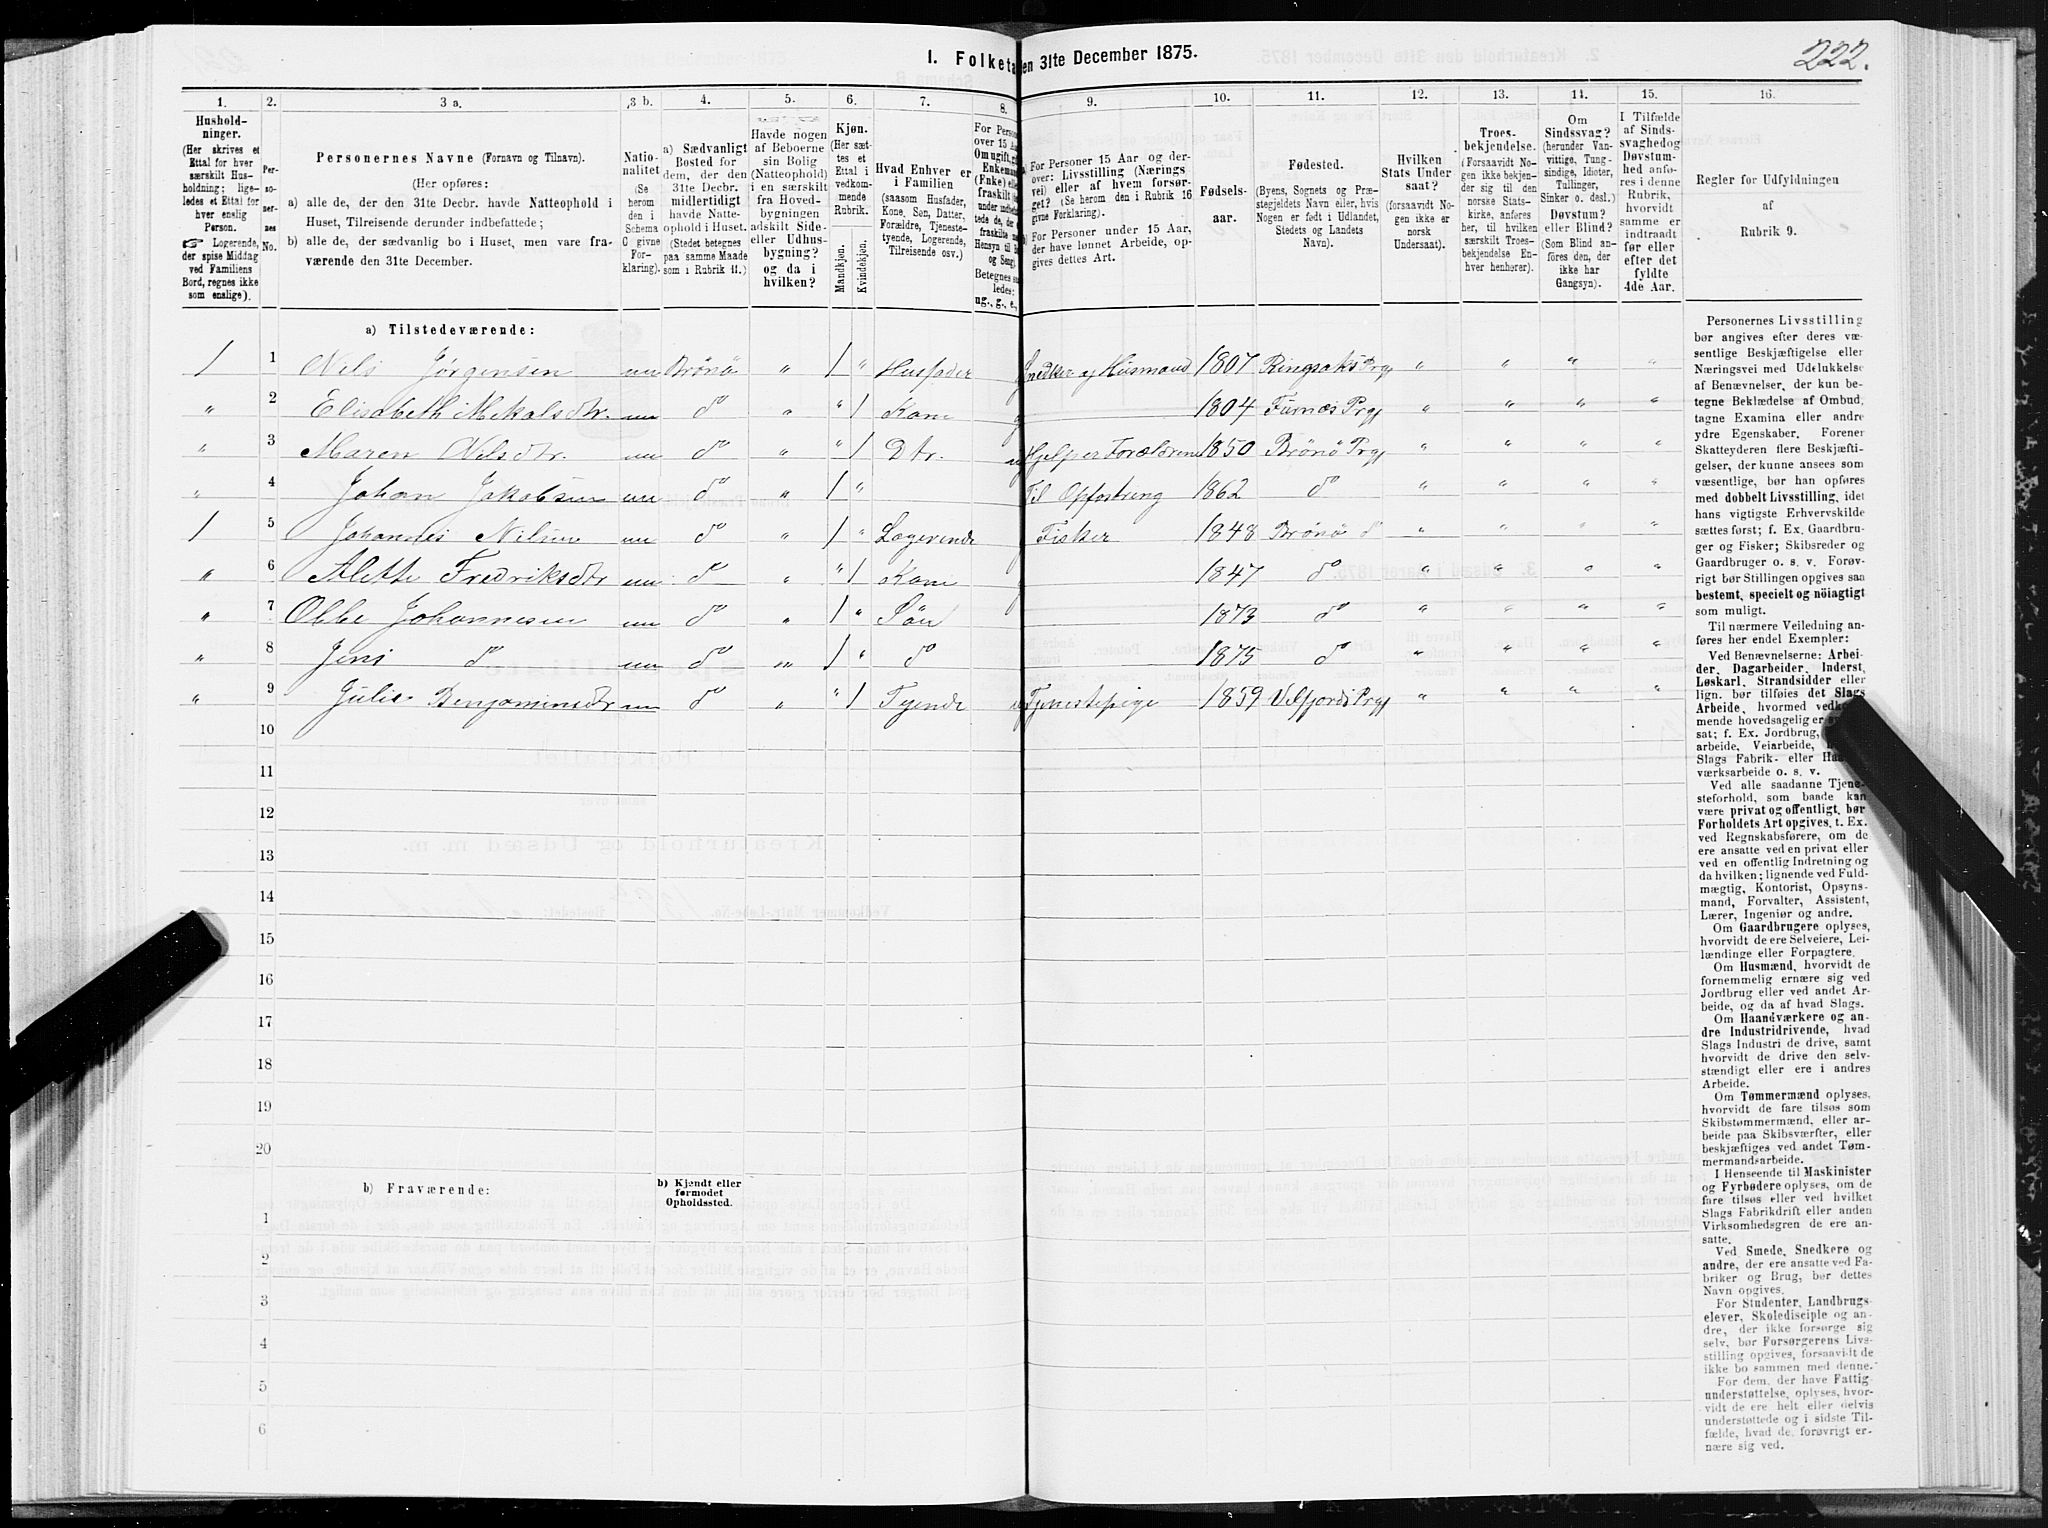 222.
I. Folketa
en 31te December 1875.
1. 2. 3 a. 3 b. 4. 5. 6. 7. 8. 9. 10. 11. 12. 13. 14. 15. 16.
Hushold-
ninger.
(Her skrives et
Ettal for hver
særskilt Hus-
holdning; lige-
ledes et Ettal for
hver enslig
Person.
☞ Logerende,
der spise Middag
ved Familiens
Bord, regnes ikke
som enslige).
Per-
so-
ner-
nes
No.
Personernes Navne (Fornavn og Tilnavn).
(Her opføres:
a) alle de, der den 31te Decbr. havde Natteophold i
Huset, Tilreisende derunder indbefattede;
b) alle de, der sædvanlig bo i Huset, men vare fra-
værende den 31te December.
Natio-
nalitet
(Se
herom
den i
Schema
C givne
For-
klaring).
a) Sædvanligt
Bosted for
dem, der den
31te Decbr.
midlertidigt
havde Natte-
ophold i Huset.
(Stedet betegnes
paa samme Maade
som i Rubrik 11.)
Havde nogen
af Beboerne
sin Bolig
(Natteophold)
i en særskilt
fra Hoved-
bygningen
adskilt Side-
eller Udhus-
bygning?
og da i
hvilken?
Kjøn.
(Her sæt-
tes et
Ettal i
vedkom-
mende
Rubrik.
Mandkjøn.
Kvindekjøn.
Hvad Enhver er
i Familien
(saasom Husfader,
Kone, Søn, Datter,
Forældre, Tjeneste-
tyende, Logerende,
Tilreisende osv.)
For Person
over 15 Aar
Om ugift, gi
Enkeman
(Enke) elle
fraskilt
Betegnes saa
ledes:
ug., g., e.,
For Personer 15 Aar og der-
over: Livsstilling (Nærings
vei) eller af hvem forsør-
get? (Se herom den i Rubrik 16
givne Forklaring).
For Personer under 15 Aar,
der have lønnet Arbeide, op-
gives dettes Art.
Fødsels-
aar.
Fødested.
(Byens, Sognets og Præ-
stegjeldets Navn eller, hvis
Nogen er født i Udlandet,
Stedets og Landets
Navn).
Hvilken
Stats Under
saat?
(forsaavidt No-
gen ikke er
norsk
Undersaat).
Troes-
bekjendelse.
(Forsaavidt No-
gen ikke bekjen-
der sig til den
norske Stats-
kirke, anføres
her, til hvilken
særskilt Troes-
bekjendelse En-
hver henhører).
Om
Sindssvag?
(herunder Van-
vittige, Tung-
sindige, Idioter,
Tullinger,
Sinker o. desl.)
Døvstum?
eller Blind?
(Som Blind an-
føres den, der
ikke har
Gangsyn).
I Tilfælde
af Sinds-
svaghedog
Døvstum-
hed anfø-
res i denne
Rubrik,
hvorvidt
samme er
indtraadt
før eller
efter det
fyldte
4de Aar.
Regler for Udfyldningen
af
Rubrik 9.
a) Tilstedeværende:
1 1 Nils Jørgensen nn Brönö „ 1 „ Husfader g Snedker og Husmand 1807 Ringsaks Prgj „ „ „ „
„ 2 Elisabeth Mikalsdtr. nn do „ „ 1 Kone g 1804 Furnæs Prgj „ „ „ „
„ 3 Maren Nilsdtr. nn do „ „ 1 Dtr. u Hjelper Forældrene 1850 Brönö Prgj „ „ „ „
„ 4 Johan Jakobsen nn do „ 1 „ Til Opfostring 1862 do „ „ „ „
1 5 Johannes Nilsen nn do „ 1 „ Logerende Fisker 1848 Brönö do „ „ „ „
„ 6 Alette Fredriksdtr nn do „ „ 1 Kone g 1847 do „ „ „ „
„ 7 Olbe Johannesen nn do „ 1 „ Sön 1873 do „ „ „ „
„ 8 Jens do nn do „ 1 „ do 1875 do „ „ „ „
„ 9 Julie Benjaminsdtr nn do „ „ 1 Tyende u Tjenestepige 1859 Velfjords Prgj „ „ „ „
10
11
12
13
14
15
16
17
18
19
20
b) Fraværende:
b) Kjendt eller
formodet
Opholdssted.
1
2
3
4
5
6
Personernes Livsstilling
bør angives efter deres væ-
sentlige Beskjæftigelse eller
Næringsvei med Udelukkelse
af Benævnelser, der kun be-
tegne Beklædelse af Ombud,
tagne Examina eller andre
ydre Egenskaber. Forener
Skatteyderen flere Beskjæfti-
gelser, der kunne ansees som
væsentlige, bør han opføres
med dobbelt Livsstilling, idet
hans vigtigste Erhvervskilde
sættes først; f. Ex. Gaardbru-
ger og Fisker; Skibsreder og
Gaardbruger o. s. v. Forøv-
rigt bør Stillingen opgives saa
bestemt, specielt og nöiagtigt
som muligt.
Til nærmere Veiledning an-
føres her endel Exempler:
Ved Benævnelserne: Arbei-
der, Dagarbeider, Inderst,
Løskarl, Strandsidder eller
lign. bør tilføies det Slags
Arbeide, hvormed vedkom-
mende hovedsagelig er
sat; f. Ex. Jordbrug,
arbeide, Veiarbeide,
Slags Fabrik- eller Haa
værksarbeide o. s. v.
Ved alle saadanne Tjene-
steforhold, som baade kan
være privat og offentligt, bør
Forholdets Art opgives, t. Ex.
ved Regnskabsførere, om de
ere ansatte ved en privat eller
ved en offentlig Indretning og
da hvilken; lignende ved Fuld-
mægtig, Kontorist, Opsyns-
mand, Forvalter, Assistent,
Lærer, Ingeniør og andre.
Om Gaardbrugere oplyses,
hvorvidt de ere Selveiere, Lei-
lændinge eller Forpagtere.
Om Husmænd, hvorvidt de
fornemmelig ernære sig ved
Jordbrug eller ved andet Ar-
beide, og da af hvad Slags.
Om Haandværkere og an-
dre Industridrivende, hvad
Slags Industri de drive, samt
hvorvidt de drive den selv-
stændigt eller ere i andres
Arbeide.
Om Tømmermænd oplyses,
hvorvidt de fare tilsøs som
Skibstømmermænd, eller ar-
beide paa Skibsværfter, eller
beskjæftiges ved andet Tøm-
mermandsarbeide.
I Henseende til Maskinister
og Fyrbødere oplyses, om de
fare tilsøs eller ved hvilket
Slags Fabrikdrift eller anden
Virksomhedsgren de ere an-
satte.
Ved Smede, Snedkere og
andre, der ere ansatte ved Fa-
briker og Brug, bør dettes
Navn opgives.
For Studenter, Landbrugs-
elever, Skoledisciple og an-
dre, der ikke forsørge sig
selv, bør Forsørgerens Livs-
stilling opgives, forsaavidt de
ikke bo sammen med denne.
For dem, der have Fattig-
understøttelse, oplyses, hvor-
vidt de ere helt eller delvis
understøttede og i sidste Til-
fælde, hvad de forøvrigt er-
nære sig ved.